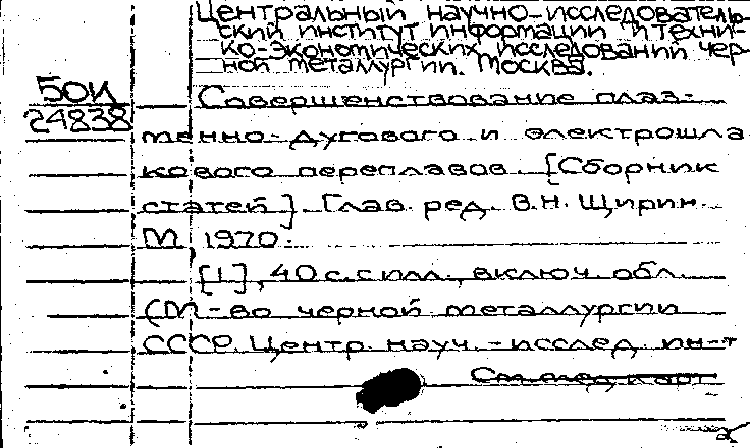 Центральный научно-исследователь-
ский институт информации и техни-
ко-экономических исследований чер-
ной металлургии. Москва.
50И
24838
Совершенствование плаз-
менно-дугового и электрошла-
кового переплавов. [Сборник
статей]. Глав. ред. В.Н. Щирин.
М 1970.
[1], 40 с. с илл., включ. обл.
(М-во черной металлургии
СССР. Центр. науч.-исслед. ин-т
См. след. карт